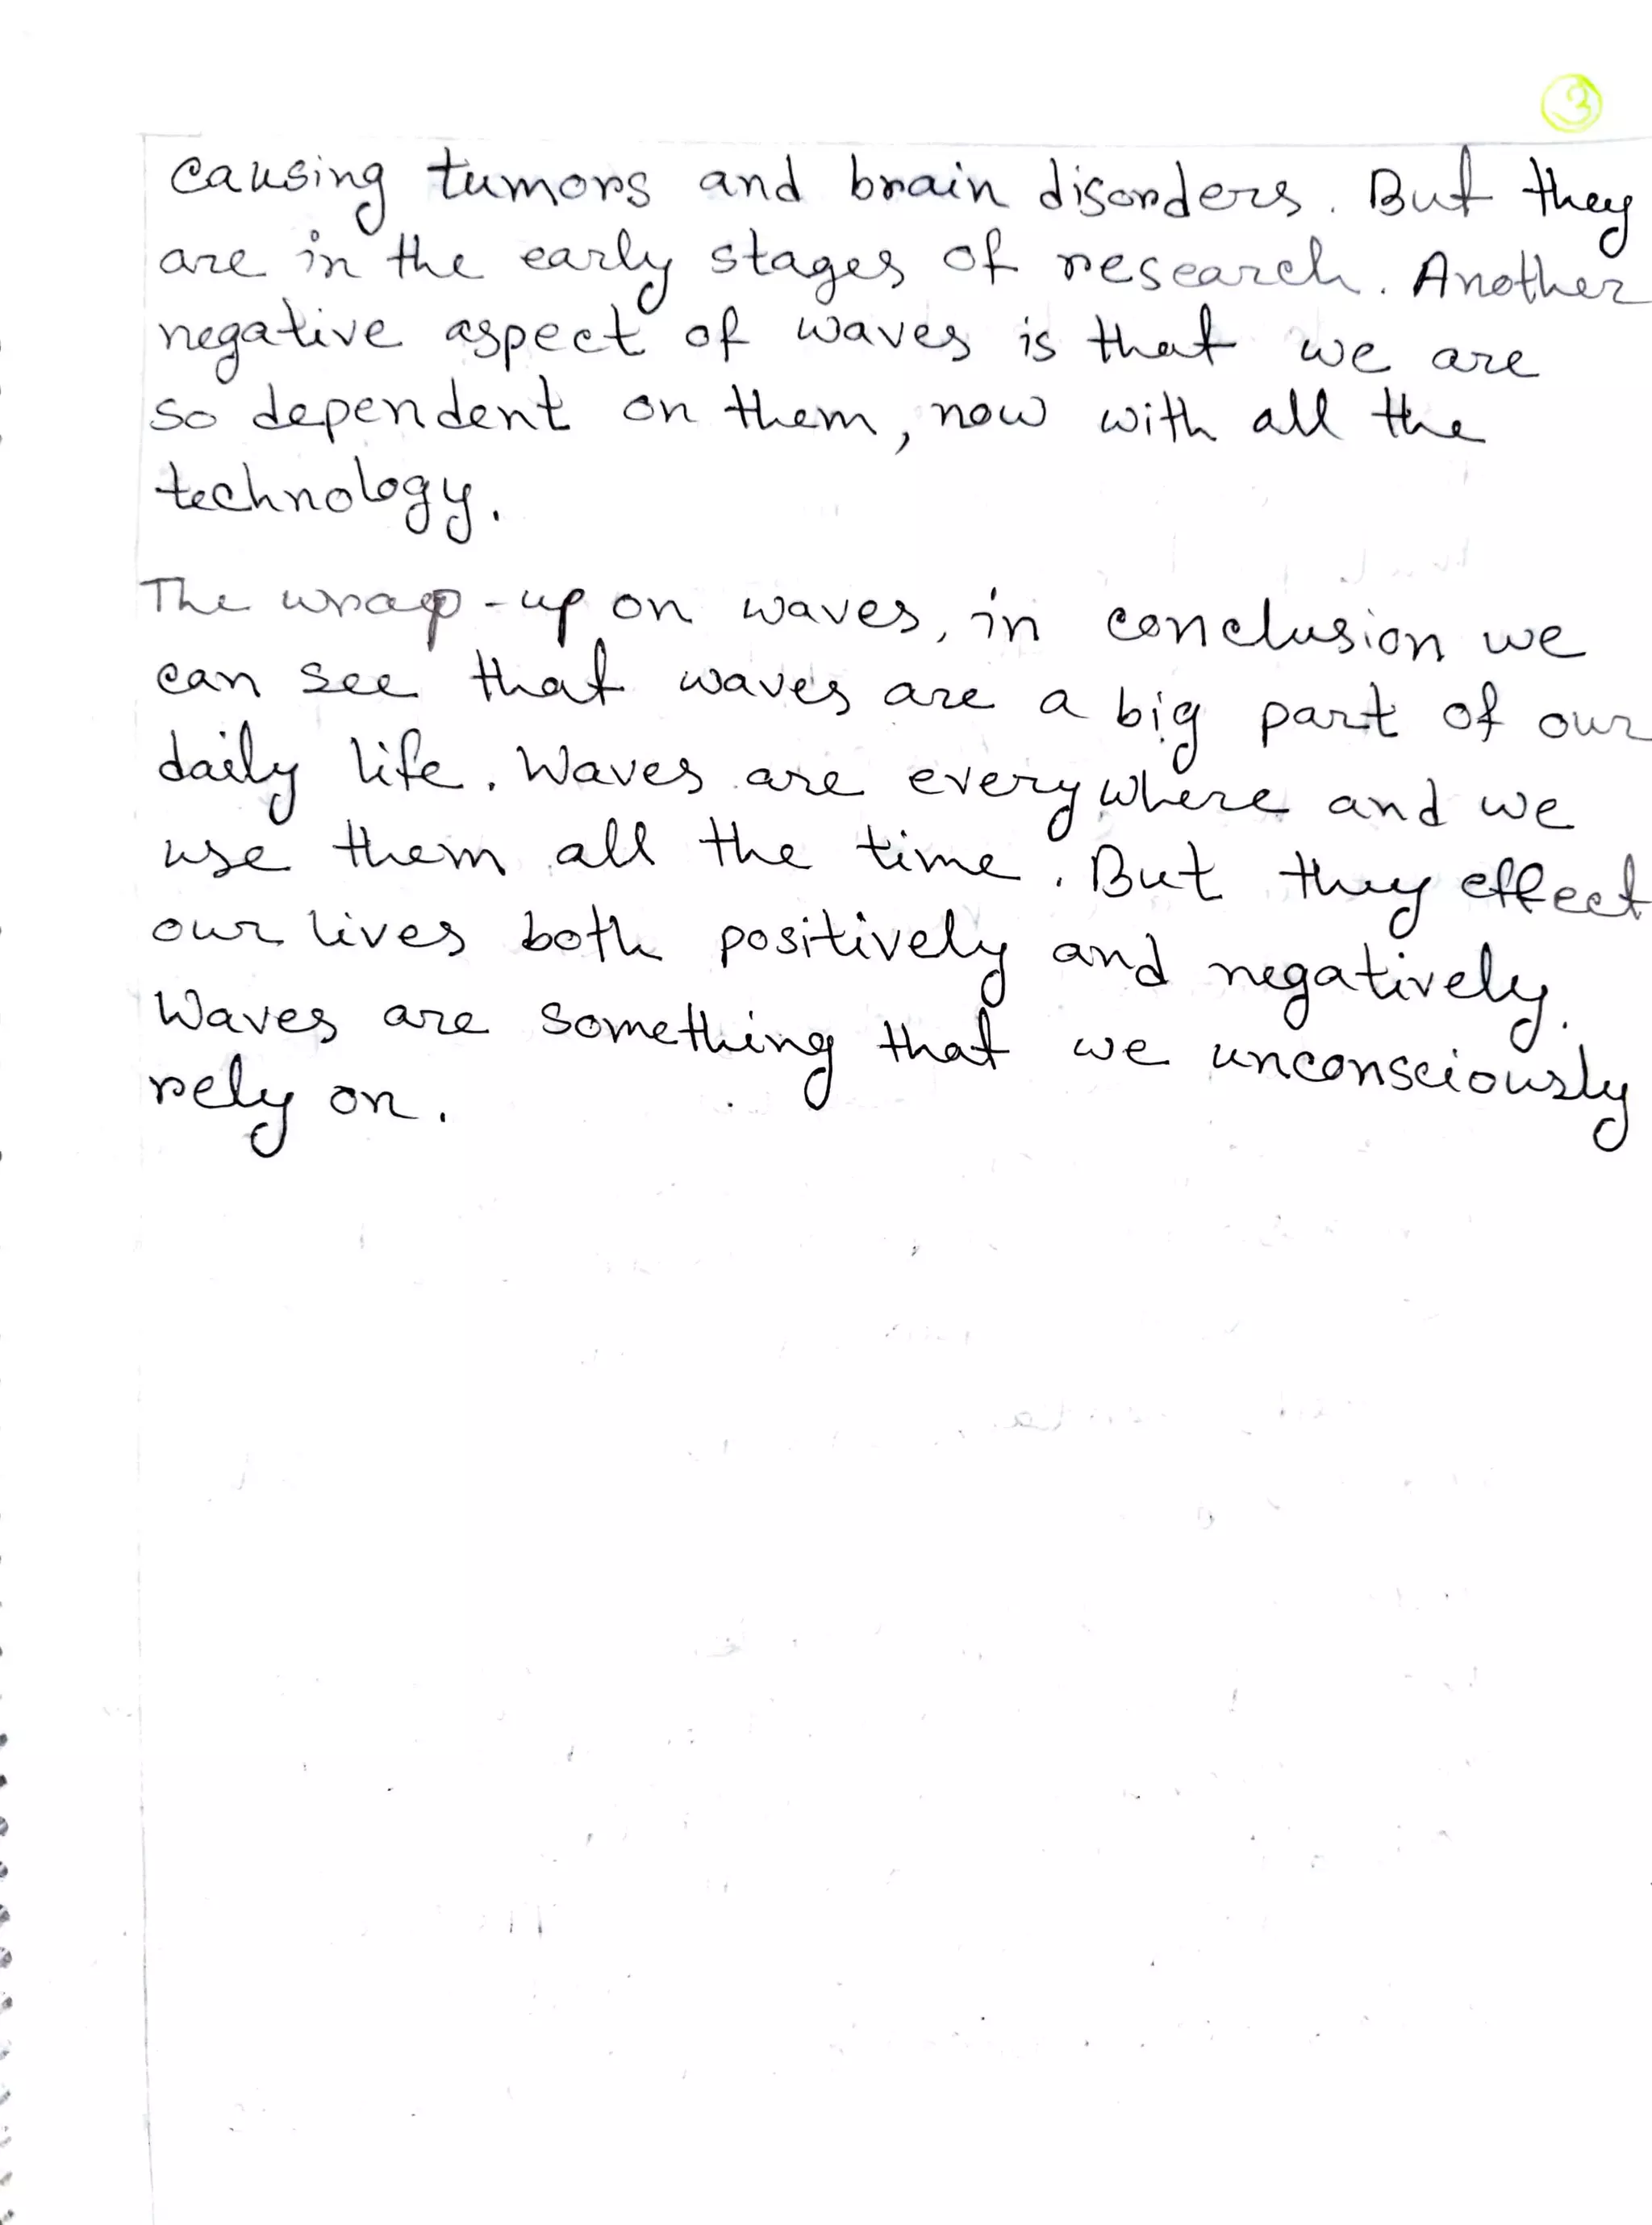 3
causing tumors and brain disorders. But they
are in the early stages of research. Another
negative aspect of waves is that we are
so dependent on them, now with all the
technology.
The wrap-up on waves, in conclusion we
can see that waves are a big part of our
daily life. Waves are everywhere and we
use them all the time. But they effect
our lives both positively and negatively.
Waves are something that we unconsciously
rely on.